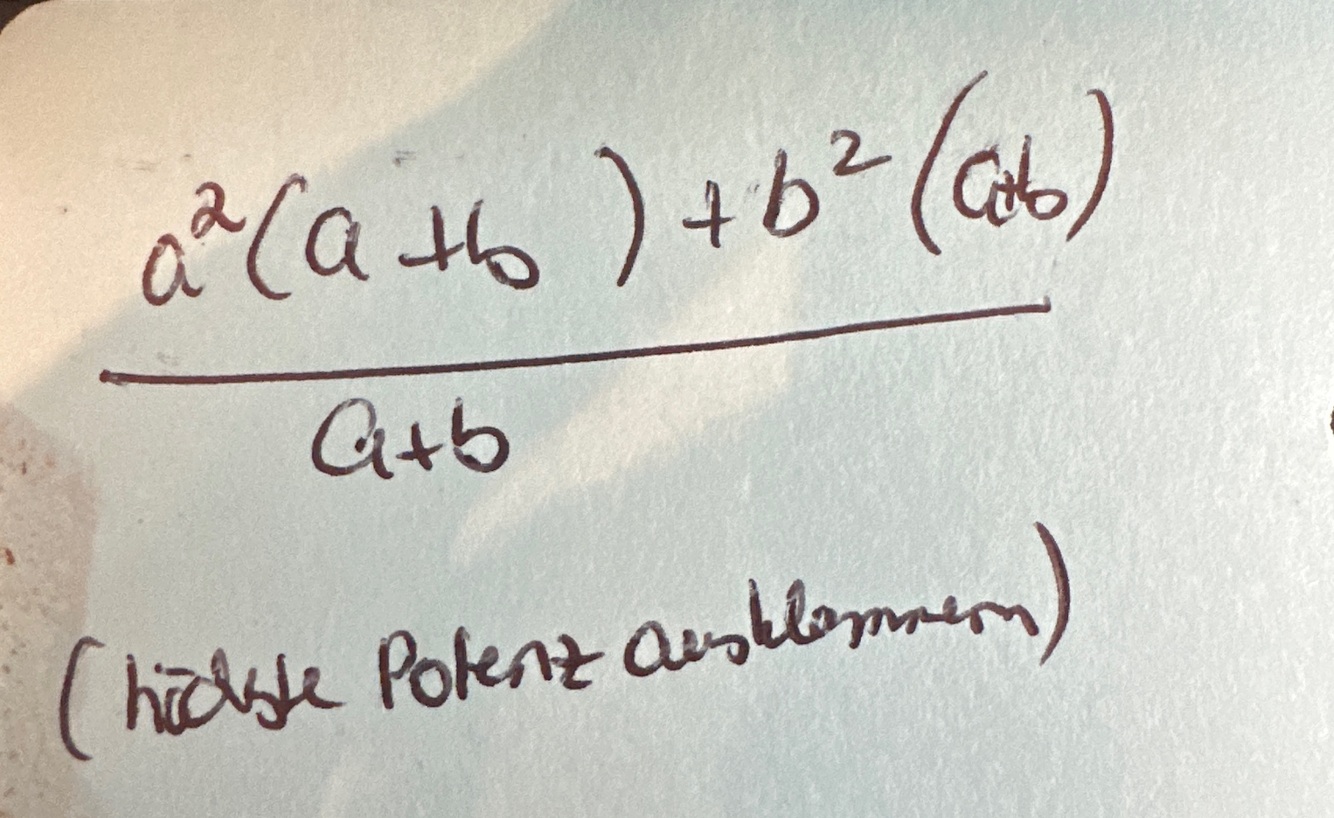 a²(a+b)+b²(a+b)
a+b
(höchste Potenz ausklammern)